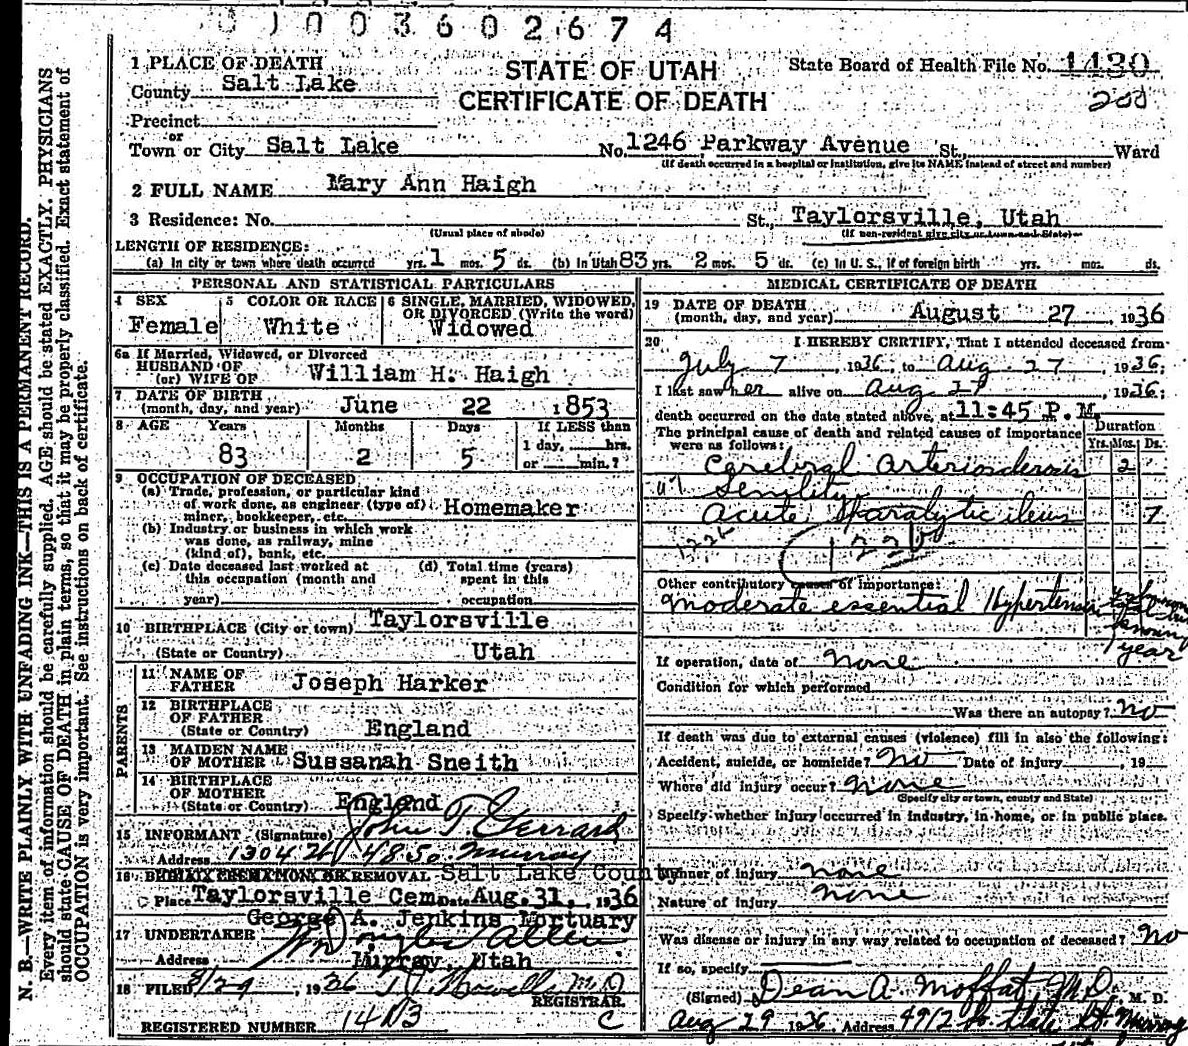 0 1 0 0 3 6 0 2 6 7 4
1 PLACE OF DEATH
County Salt Lake
STATE OF UTAH
CERTIFICATE OF DEATH
State Board of Health File No. 1430
200
Precinct
or
Town or City Salt Lake No. 1246 Parkway Avenue St., Ward
(If death occurred in a hospital or institution, give its NAME instead of street and number)
2 FULL NAME Mary Ann Haigh
3 Residence: No. St., Taylorsville, Utah
(Usual place of abode) (If non-resident give city or town and State)
LENGTH OF RESIDENCE:
(a) In city or town where death occurred yrs. 1 mos. 5 ds. (b) In Utah 83 yrs. 2 mos. 5 ds. (c) In U. S., if of foreign birth yrs. mos. ds.
PERSONAL AND STATISTICAL PARTICULARS
4 SEX Female
5 COLOR OR RACE White
6 SINGLE, MARRIED, WIDOWED, OR DIVORCED (Write the word) Widowed
6a If Married, Widowed, or Divorced
HUSBAND OF
(or) WIFE OF William H. Haigh
7 DATE OF BIRTH
(month, day, and year) June 22 1853
8 AGE Years Months Days If LESS than
1 day, hrs.
83 2 5 or min.?
9 OCCUPATION OF DECEASED
(a) Trade, profession, or particular kind
of work done, as engineer (type of)
miner, bookkeeper, etc. Homemaker
(b) Industry or business in which work
was done, as railway, mine
(kind of), bank, etc.
(c) Date deceased last worked at
this occupation (month and
year)
(d) Total time (years)
spent in this
occupation
10 BIRTHPLACE (City or town) Taylorsville
(State or Country) Utah
PARENTS
11 NAME OF
FATHER Joseph Harker
12 BIRTHPLACE
OF FATHER
(State or Country) England
13 MAIDEN NAME
OF MOTHER Sussanah Sneith
14 BIRTHPLACE
OF MOTHER
(State or Country) England
15 INFORMANT (Signature) John T. Gerrard
Address 1304 W 4850 Murray
16 BURIAL CREMATION OR REMOVAL Salt Lake County
Place Taylorsville Cem Date Aug. 31, 1936
George A. Jenkins Mortuary
17 UNDERTAKER Wm Douglas Allen
Address Murray, Utah
18 FILED 8/29, 1936 M.D.
REGISTRAR.
REGISTERED NUMBER 1413 C
MEDICAL CERTIFICATE OF DEATH
19 DATE OF DEATH
(month, day, and year) August 27, 1936
20 I HEREBY CERTIFY, That I attended deceased from
July 7, 1936, to Aug 27, 1936;
I last saw her alive on Aug 27, 1936;
death occurred on the date stated above, at 11:45 P.M.
The principal cause of death and related causes of importance
were as follows:
Duration
Yrs. Mos. Ds.
Cerebral arteriosclerosis 2
Senility
Acute Paralytic ileus 7
122b
Other contributory causes of importance:
moderate essential Hypertension
1 year
If operation, date of none
Condition for which performed
Was there an autopsy? no
If death was due to external causes (violence) fill in also the following:
Accident, suicide, or homicide? No Date of injury , 19
Where did injury occur? none
(Specify city or town, county and State)
Specify whether injury occurred in industry, in home, or in public place.
Manner of injury none
Nature of injury none
Was disease or injury in any way related to occupation of deceased? no
If so, specify
(Signed) Dean A. Moffat M.D. M. D.
Aug 29 1936, Address 4912 So. State St. Murray
N. B.—WRITE PLAINLY WITH UNFADING INK—THIS IS A PERMANENT RECORD.
Every item of information should be carefully supplied. AGE should be stated EXACTLY. PHYSICIANS
should state CAUSE OF DEATH in plain terms, so that it may be properly classified. Exact statement of
OCCUPATION is very important. See instructions on back of certificate.